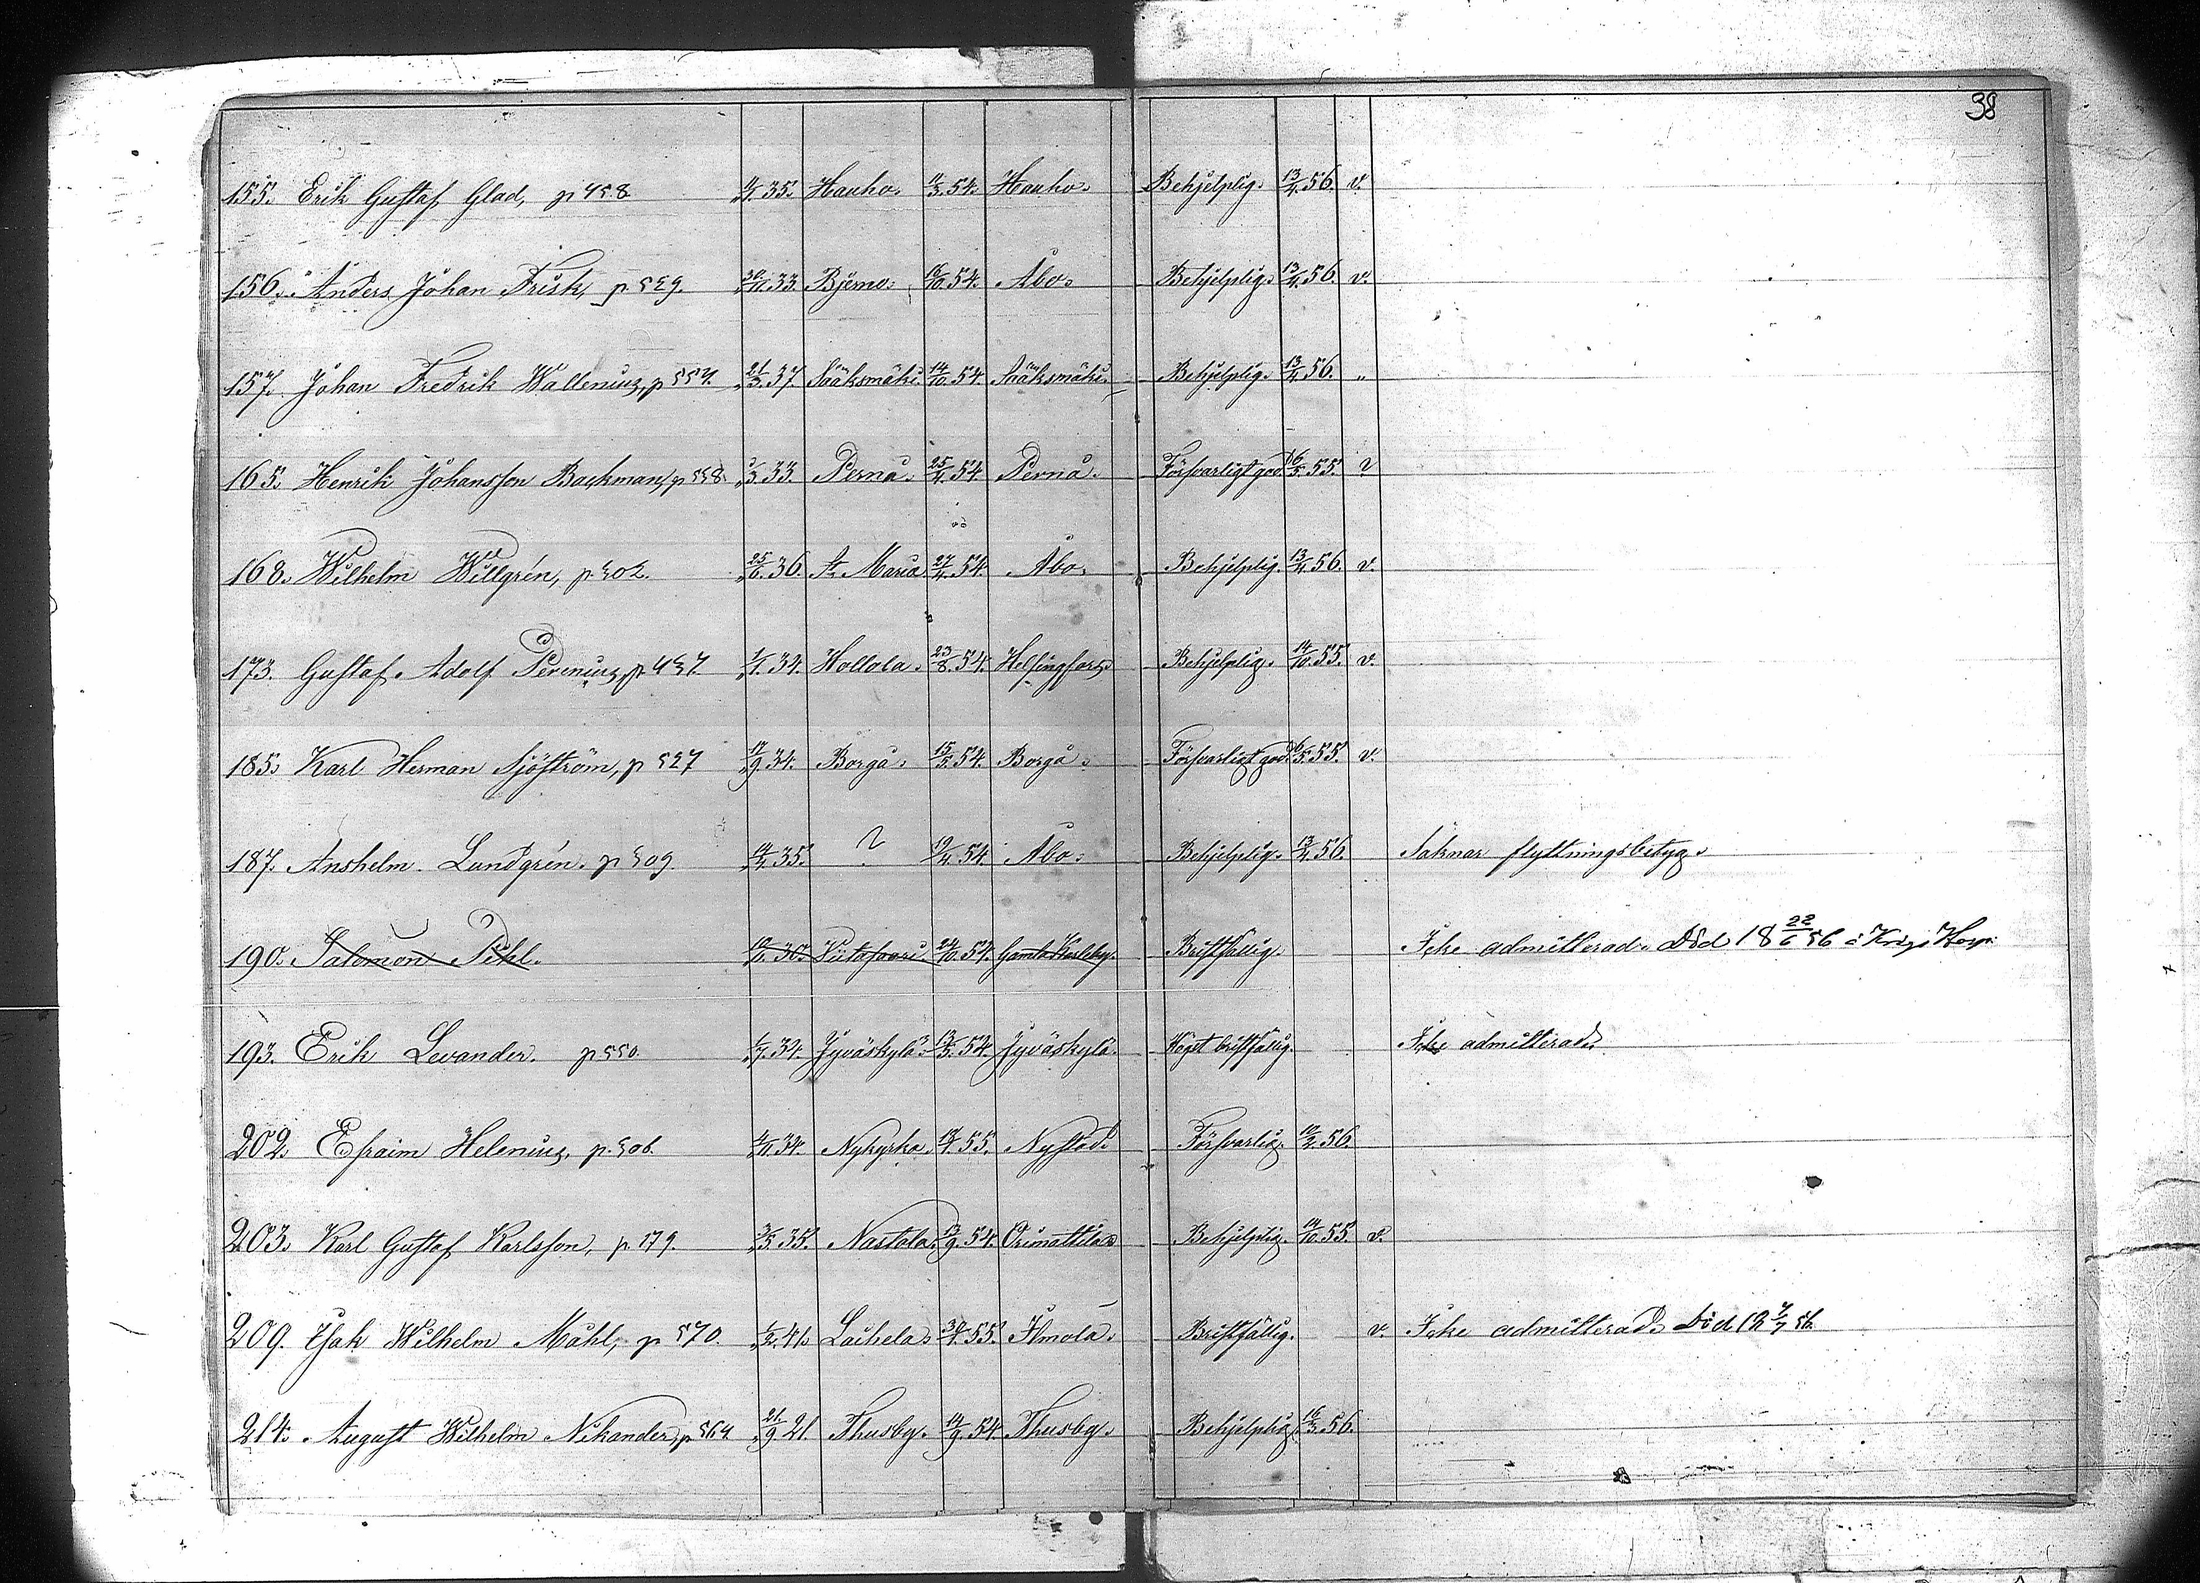 38
155. Erik Gustaf Glad, p 458 4/4.35. Hauho. 11/3.54. Hauho. Behjelplig. 13/4.56. v.
156. Anders Johan Frisk, p 529. 30/11.33 Bjerno. 16/10.54. Åbo. Behjelplig. 13/4.56. v.
157. Johan Fredrik Wallenius, p 557. 21/3.37 Sääksmäki. 14/10.54. Sääksmäki. Behjelplig. 13/4.56. "
165. Henrik Johansson Backman, p 558. 3/3.33. Pernå. 25/4.54. Pernå. Försvarligt god. 16/5.55. v
168. Wilhelm Willgrén, p. 502. 25/6.36. St. Maria 27/4.54. Åbo. Behjelplig. 13/4.56. v.
173. Gustaf Adolf Perenius, p. 457. 1/1.34. Hollola. 23/8.54. Helsingfors. Behjelplig. 14/10.55. v.
185. Karl Herman Sjöström, p 527 17/9.34. Borgå. 15/5.54. Borgå. Försvarligt god. 16/5.55. v.
187. Anshelm Lundgrén. p 509. 14/4.35. ? 19/4.54. Åbo. Behjelplig. 13/4.56. Saknar flyttningsbetyg.
190. Salomon Pihl. 30. Viitasaari 24/10.54. Gamla Karleby. Bristfällig. Icke admitterad. Död 18 22/6 56 i
193. Erik Levander. p 550. 1/7.34. Jyväskylä. 13/5.54. Jyväskylä. Högst bristfällig. Icke admitterad.
202. Efraim Helenius, p. 506. 4/11.34. Nykyrka. 55. Nystad. Försvarlig. 10/2.56.
203. Karl Gustaf Karlsson, p. 179. 3/5.35. Nastola. 13/9.54. Orimattila. Behjelplig. 14/10.55. v.
209. Isak Wilhelm Måhl, p 570. 1/2.41. Laihela. 30/4.55. Ilmola. Bristfällig. v. Icke admitterad. Död 18 7/7 56.
214. August Wilhelm Nikander, p 564 21/9 21 Thusby. 14/9.54. Thusby. Behjelplig. 16/3.56.